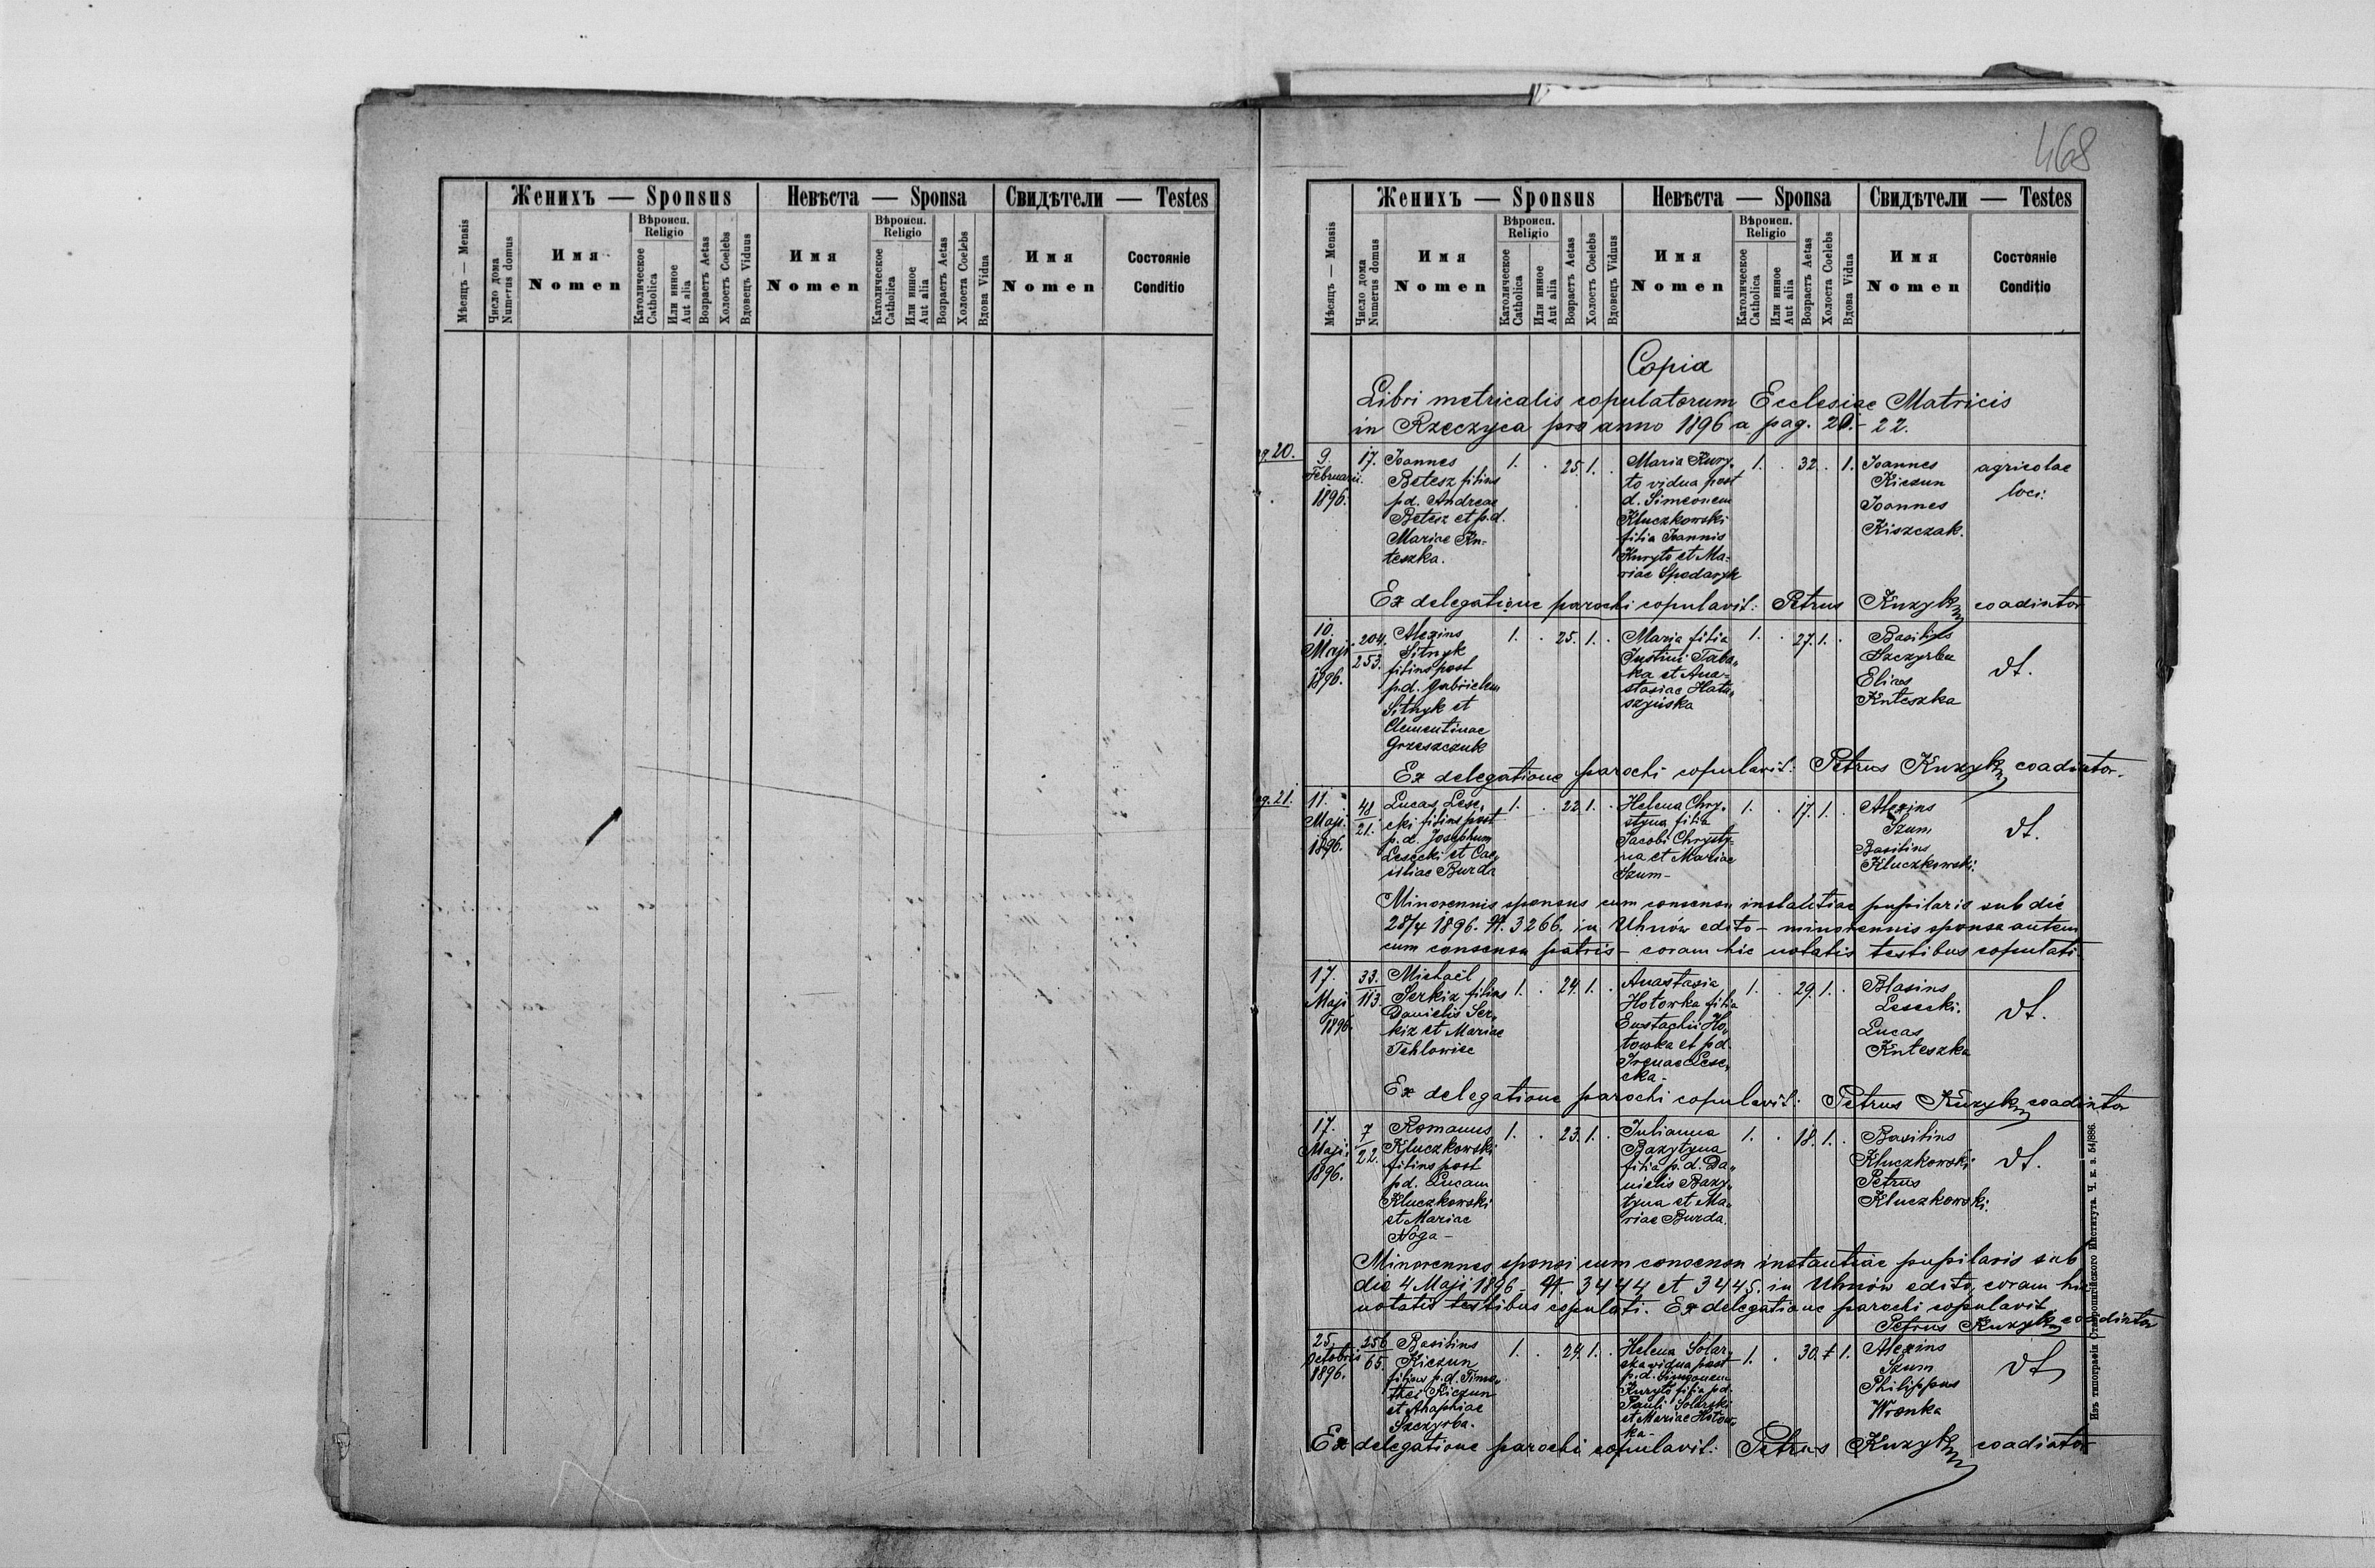 Женихъ — Sponsus
Невѣста — Sponsa
Свидѣтели — Testes
Мѣсяцъ — Mensis
Число дома
Numerus domus
Имя
Nomen
Вѣроисп.
Religio
Католическое
Catholica
Или иное
Aut alia
Возрастъ Aetas
Холостъ Coelebs
Вдовецъ Viduus
Имя
Nomen
Вѣроисп.
Religio
Католическое
Catholica
Или иное
Aut alia
Возрастъ Aetas
Холоста Coelebs
Вдова Vidua
Имя
Nomen
Состояніе
Conditio
468
Женихъ — Sponsus
Невѣста — Sponsa
Свидѣтели — Testes
Мѣсяцъ — Mensis
Число дома
Numerus domus
Имя
Nomen
Вѣроисп.
Religio
Католическое
Catholica
Или иное
Aut alia
Возрастъ Aetas
Холостъ Coelebs
Вдовецъ Viduus
Имя
Nomen
Вѣроисп.
Religio
Католическое
Catholica
Или иное
Aut alia
Возрастъ Aetas
Холоста Coelebs
Вдова Vidua
Имя
Nomen
Состояніе
Conditio
Copia
Libri metricalis copulatorum Ecclesiae Matricis
in Rzeczyca pro anno 1896 a pag. 20.- 22.
20.
9.
Februarii
1896.
17.
Joannes
Betesz filius
p.d. Andreae
Betesz et p.d.
Mariae Ku-
teszka.
1. . 25. 1. .
Maria Kury-
to vidua post
d. Simeonem
Kluczkowski
filia Joannis
Kuryto et Ma-
riae Spodaryk
1. . 32 . 1.
Joannes
Kiczun
Joannes
Kiszczak.
agricolae
loci.
Ex delegatione parochi copulavit: Petrus Kuzyk coadiutor
10.
Maji
1896.
204.
253.
Alexius
Sitnyk
filius post
p.d. Gabrielem
Sitnyk et
Clementinae
Grzeszczuk
1. . 25. 1. .
Maria filia
Justini Taba-
ka et Ana-
stasiae Hatu-
szyńska
1. . 27. 1. .
Basilius
Szczyrba
Elias
Kuteszka
dt.
Ex delegatione parochi copulavit: Petrus Kuzyk coadiutor.
21.
11.
Maji
1896.
48
21.
Lucas Lese-
cki filius post
p.d. Josephum
Lesecki et Cae-
siliae Burda
1. . 22 1. .
Helena Chry-
styna filia
Jacobi Chrysty-
na et Mariae
Szum-
1. . 17. 1. .
Alexius
Szum
Basilius
Kluczkowski.
dt.
Minorennis sponsus cum consensu instalitiae pupilaris sub die
28/4 1896. N. 3266. in Uhnów edito - minorennis sponsa autem
cum consensu patris - coram hic notatis testibus copulati
17.
Maji
1896.
33.
113.
Michaël
Serkiz filius
Danielis Ser-
kiz et Mariae
Tehlowiec
1. . 24. 1. .
Anastasia
Hotowka filia
Eustachii Ho-
towka et p.d.
Irenae Lese-
cka-
1. . 29. 1. .
Blasius
Lesecki.
Lucas
Kuteszka
dt.
Ex delegatione parochi copulavit: Petrus Kuzyk coadiutor
17.
Maji
1896.
7
22.
Romanus
Kluczkowski
filius post
p.d. Lucam
Kluczkowski
et Mariae
Noga -
1. . 23. 1. .
Julianna
Bazytyna
filia p.d. Da-
nielis Bazy-
tyna et Ma-
riae Burda.
1. . 18. 1. .
Basilius
Kluczkowski
Petrus
Kluczkowski.
dt.
Minorennes sponsi cum consensu instantiae pupilaris sub
die 4 Maji 1896 - N. 3444 et 3445. in Uhnów edito, coram hic
notatis testibus copulati. Ex delegatione parochi copulavit
Petrus Kuzyk coadiutor
25.
Octobris
1896.
256
65.
Basilius
Kiczun
filius p.d. Timo-
thei Kiczun
et Ahaphiae
Szczyrba.
1. . 24. 1. .
Helena Solar-
ska vidua post
p.d. Simeonem
Kuryto filia p.d.
Pauli Solarski
et Mariae Hotow-
ka-
1. . 30. 1.
Alexius
Szum
Philippus
Wronka
dt
Ex delegatione parochi copulavit: Petrus Kuzyk coadiutor
Изъ типографіи Ставропигійского Института. Ч. к. з. 54/886.